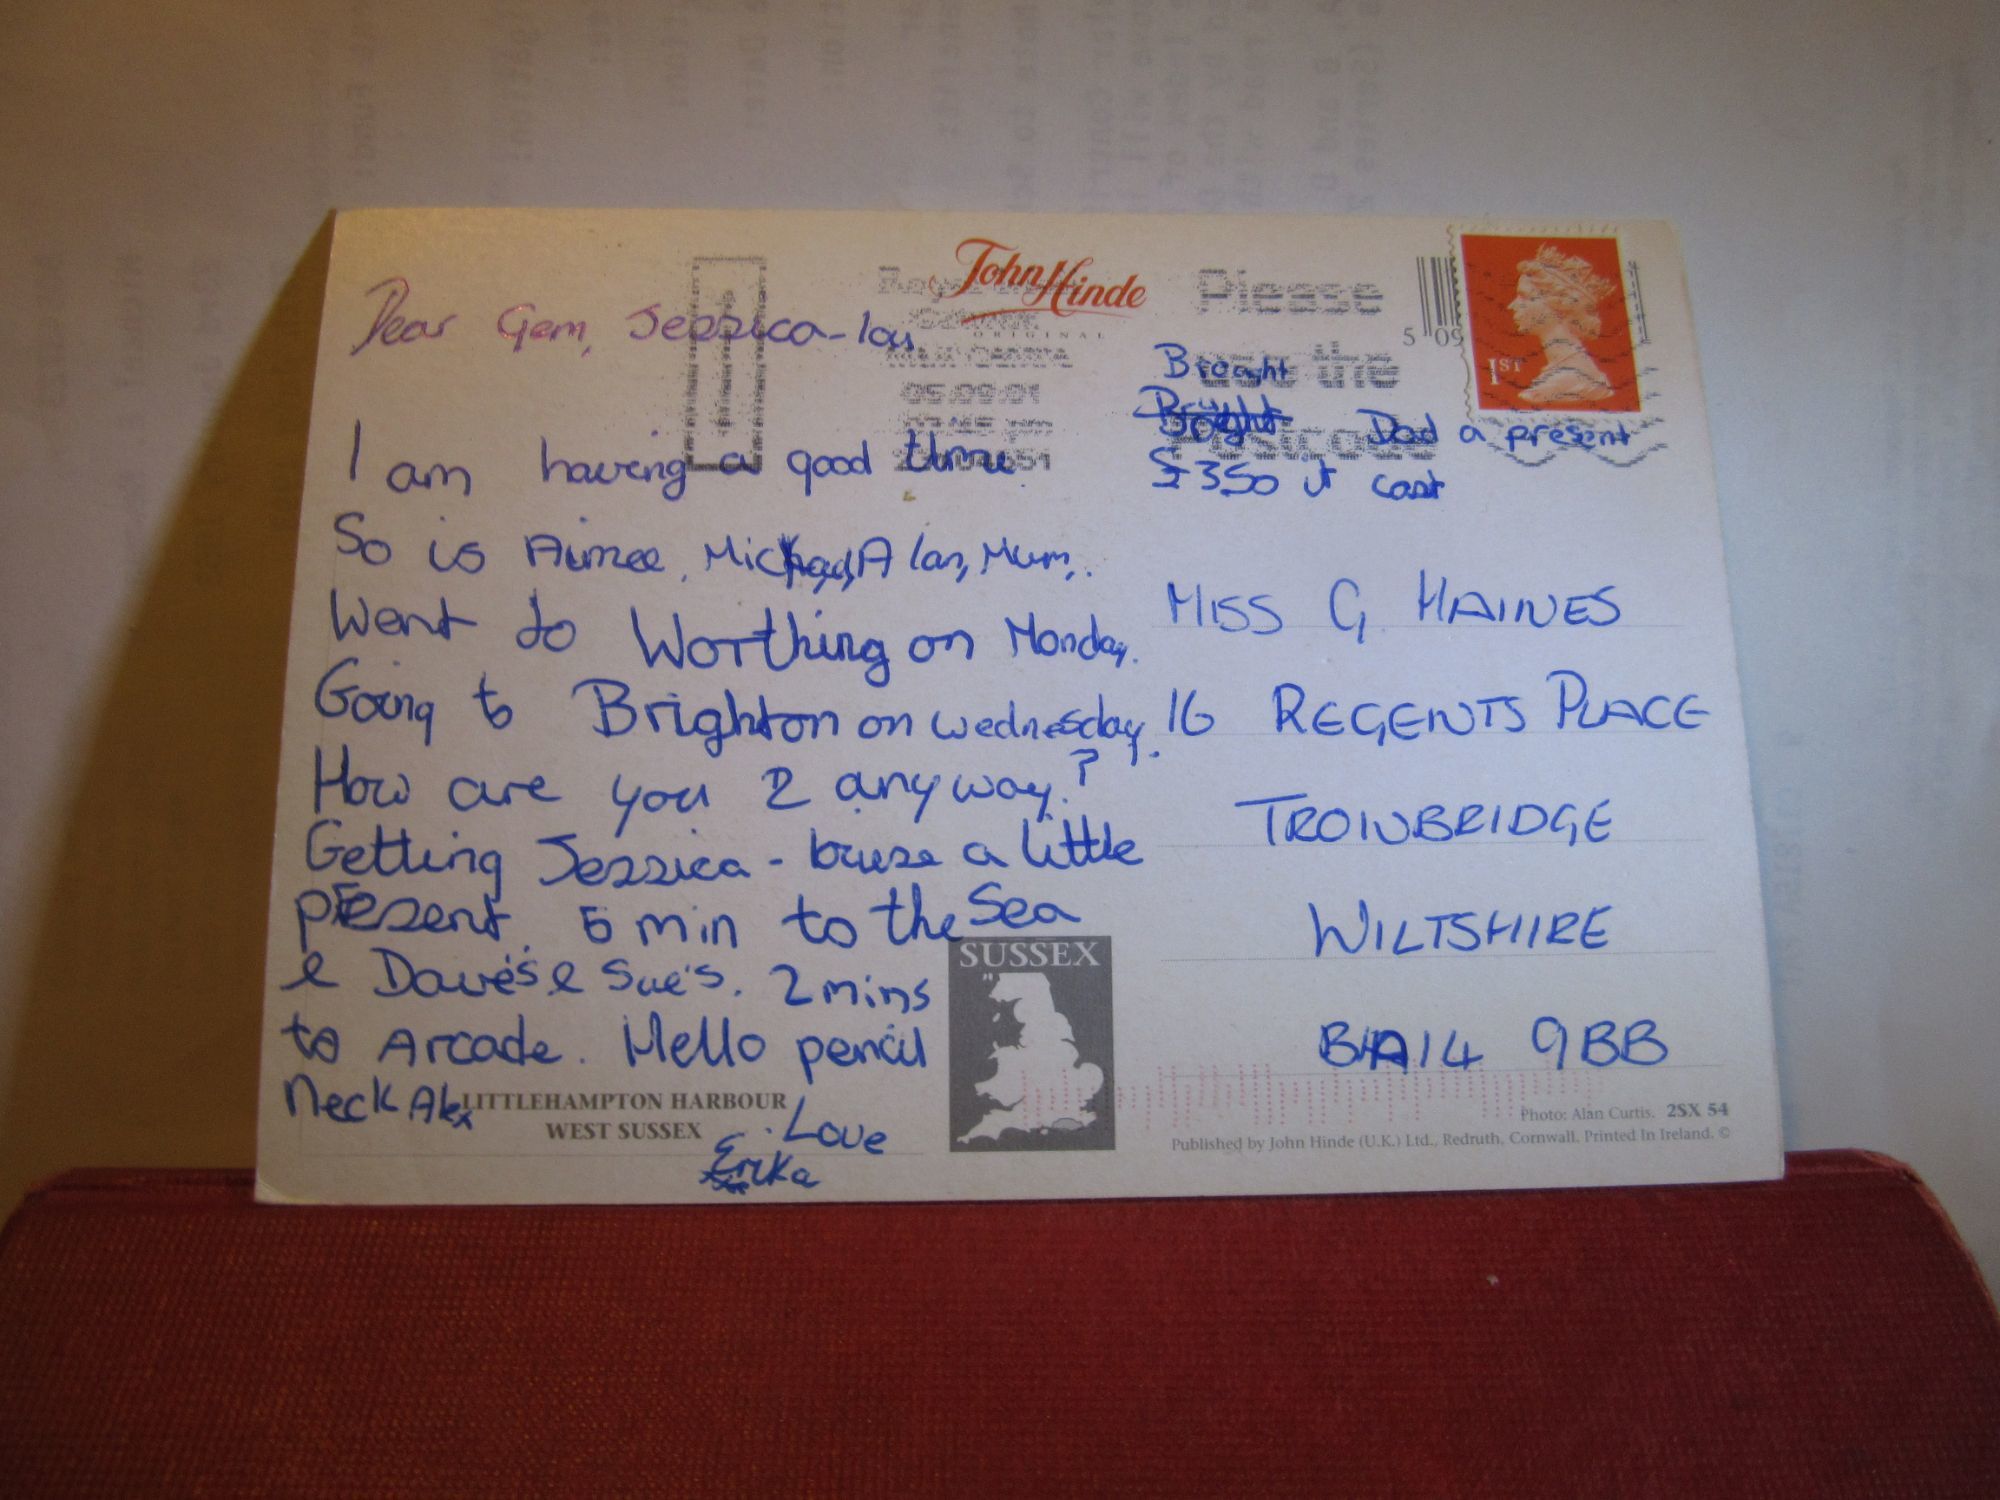 John Hinde
ORIGINAL
Please
use the
Postcode
05.09.01
5 09
1ST
Dear Gem, Jessica-lou
I am having a good time
So is Aimee, Michael, Alan, Mum,.
Went to Worthing on Monday.
Going to Brighton on wednesday.
How are you 2 anyway?
Getting Jessica - a little
present. 5 min to the Sea
& Dave's & Sue's. 2 mins
to Arcade. Hello pencil
neck Alex
Love
Erika
Brought
Dad a present
£350 it cost
MISS G. HAINES
16 REGENTS PLACE
TROWBRIDGE
WILTSHIRE
BA14 9BB
SUSSEX
LITTLEHAMPTON HARBOUR
WEST SUSSEX
Photo: Alan Curtis. 2SX 54
Published by John Hinde (U.K.) Ltd., Redruth, Cornwall. Printed In Ireland. ©